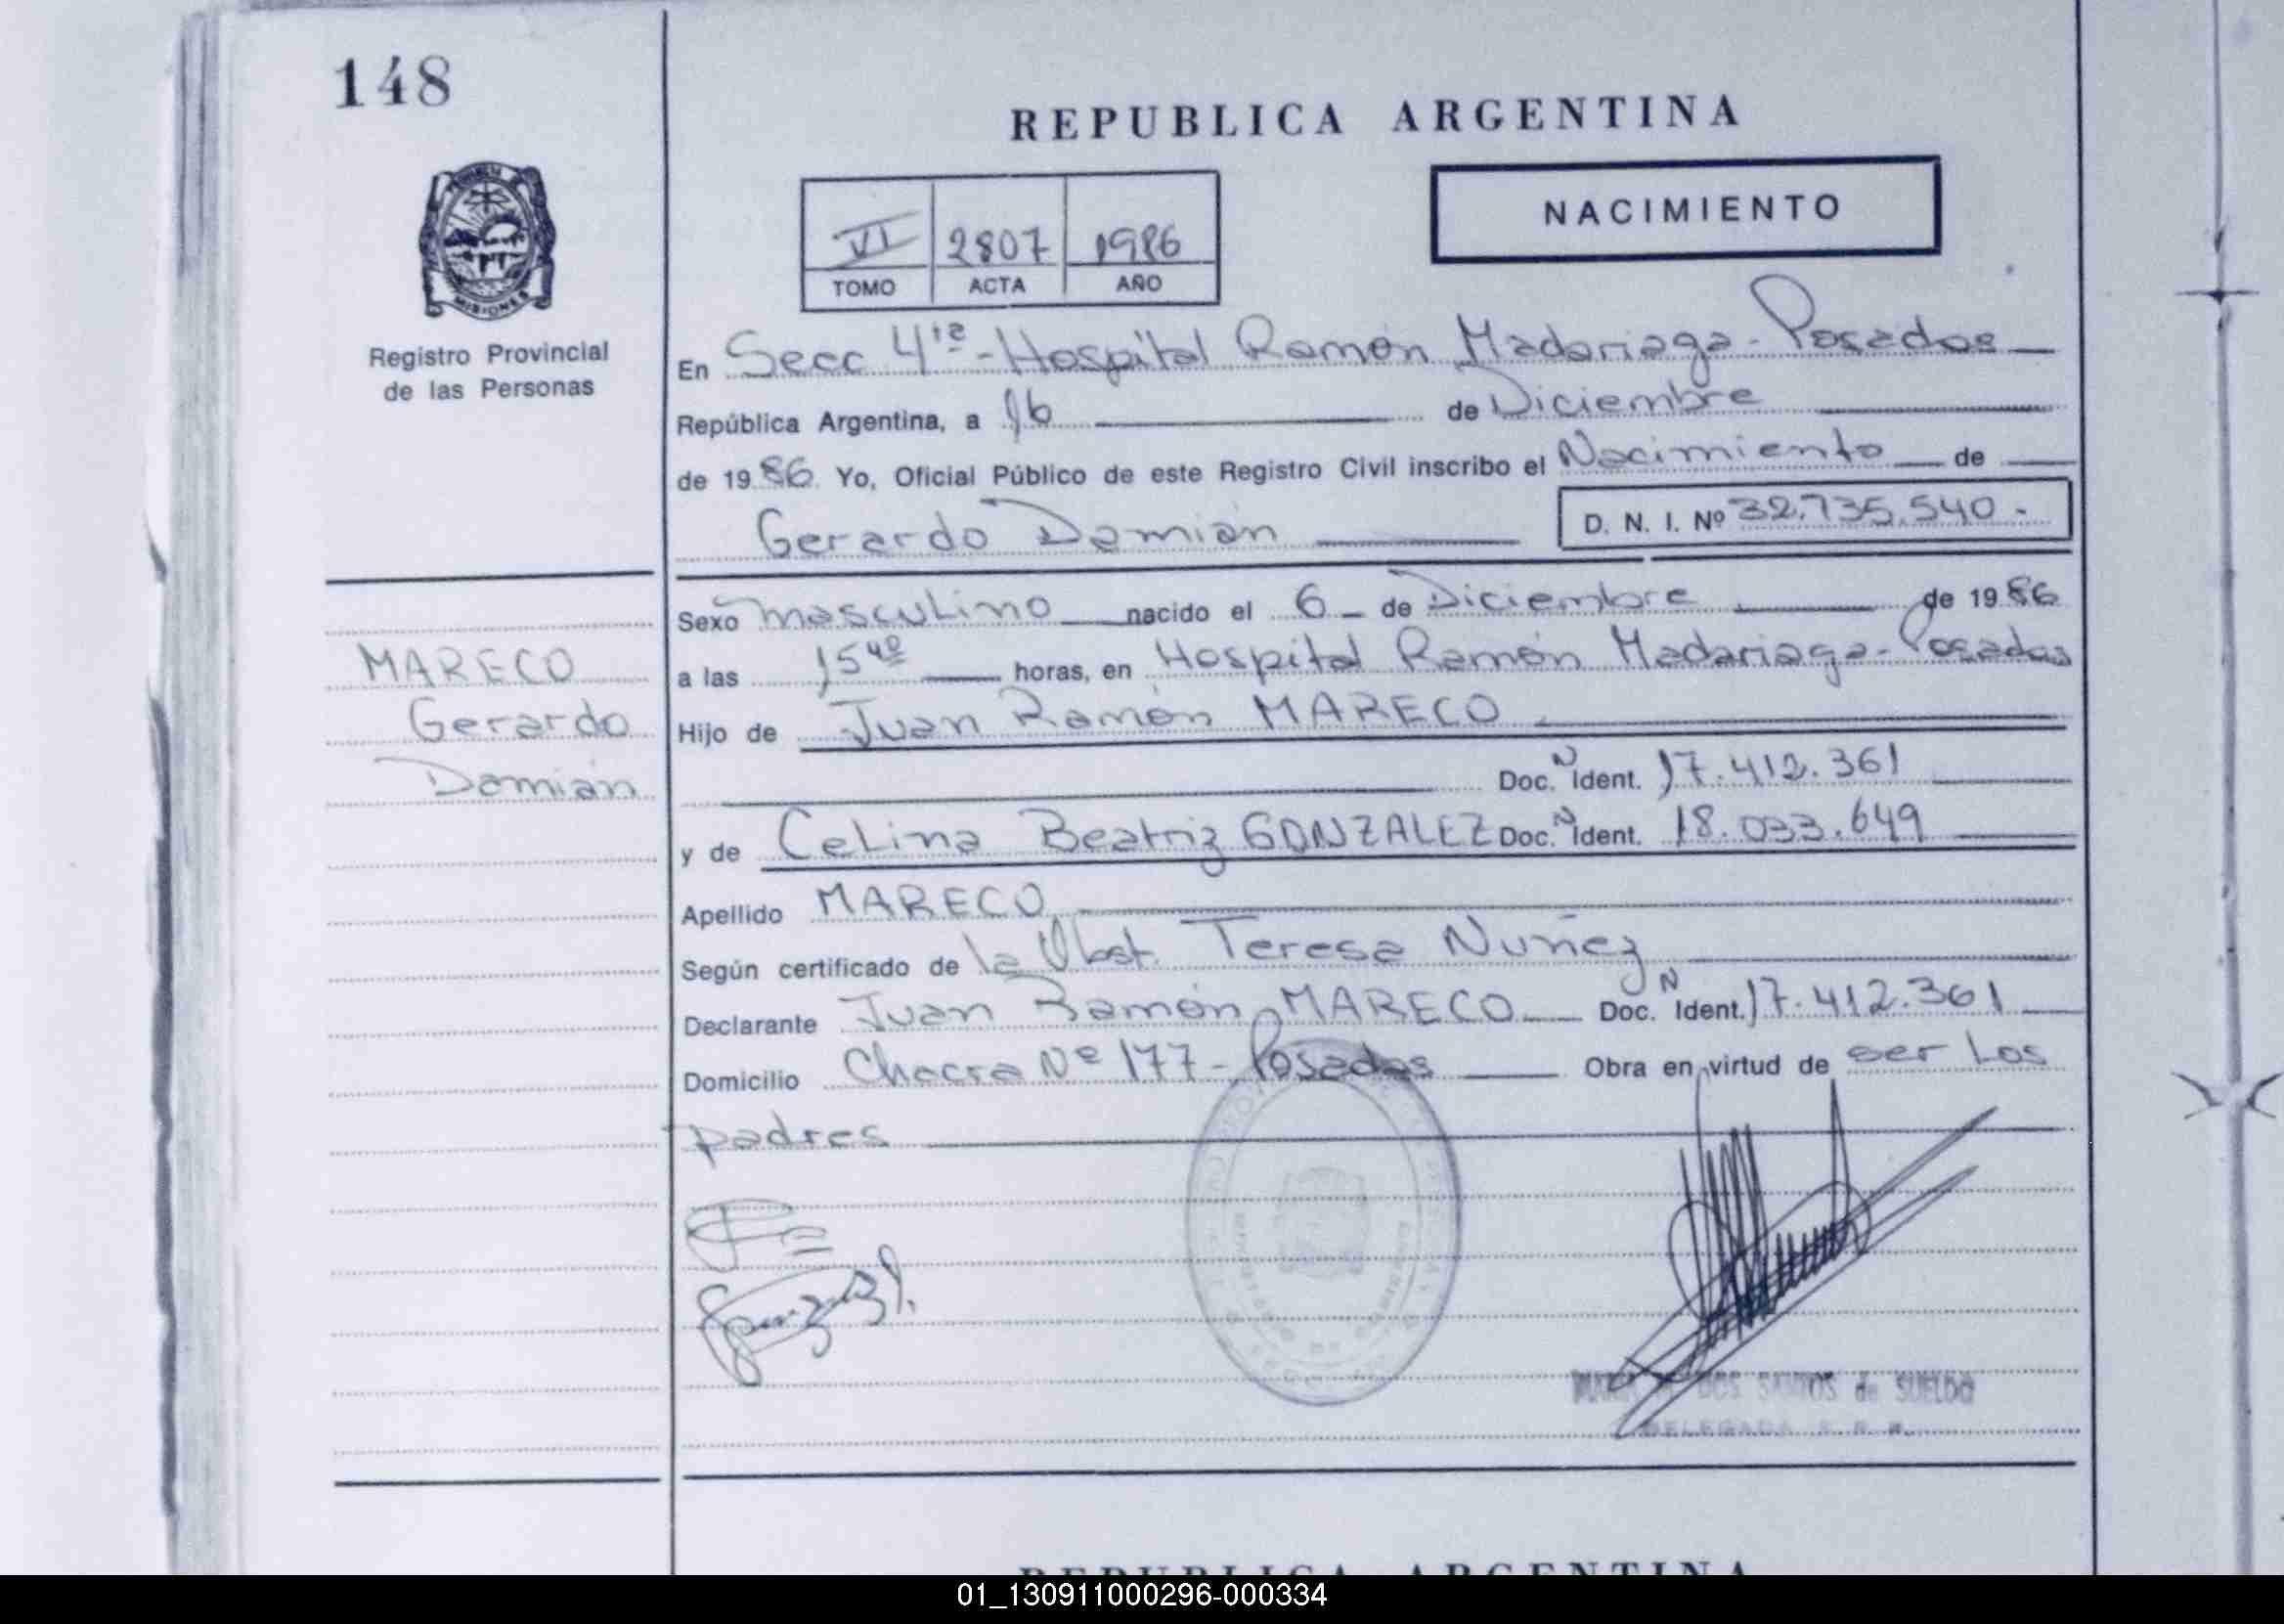 148
REPUBLICA ARGENTINA
NACIMIENTO
VI 2807 1986
TOMO ACTA AÑO
MISIONES
Registro Provincial
de las Personas
En Secc 4ta - Hospital Ramón Madariaga - Posadas
República Argentina, a 16 de Diciembre
de 1986 Yo, Oficial Público de este Registro Civil inscribo el Nacimiento de
Gerardo Damián D. N. I. Nº 32.735.540.-
MARECO
Gerardo
Damián
Sexo masculino nacido el 6 de Diciembre de 1986
a las 15 40 horas, en Hospital Ramón Madariaga - Posadas
Hijo de Juan Ramón MARECO
Doc. N Ident. 17.412.361
y de Celina Beatriz GONZALEZ Doc. N Ident. 18.033.649
Apellido MARECO
Según certificado de la Obst. Teresa Nuñez
Declarante Juan Ramón MARECO Doc. N Ident. 17.412.361
Domicilio Chacra Nº 177 - Posadas Obra en virtud de ser los
padres
DOS SANTOS de SUELDO
DELEGADA
REPUBLICA ARGENTINA
01_130911000296-000334